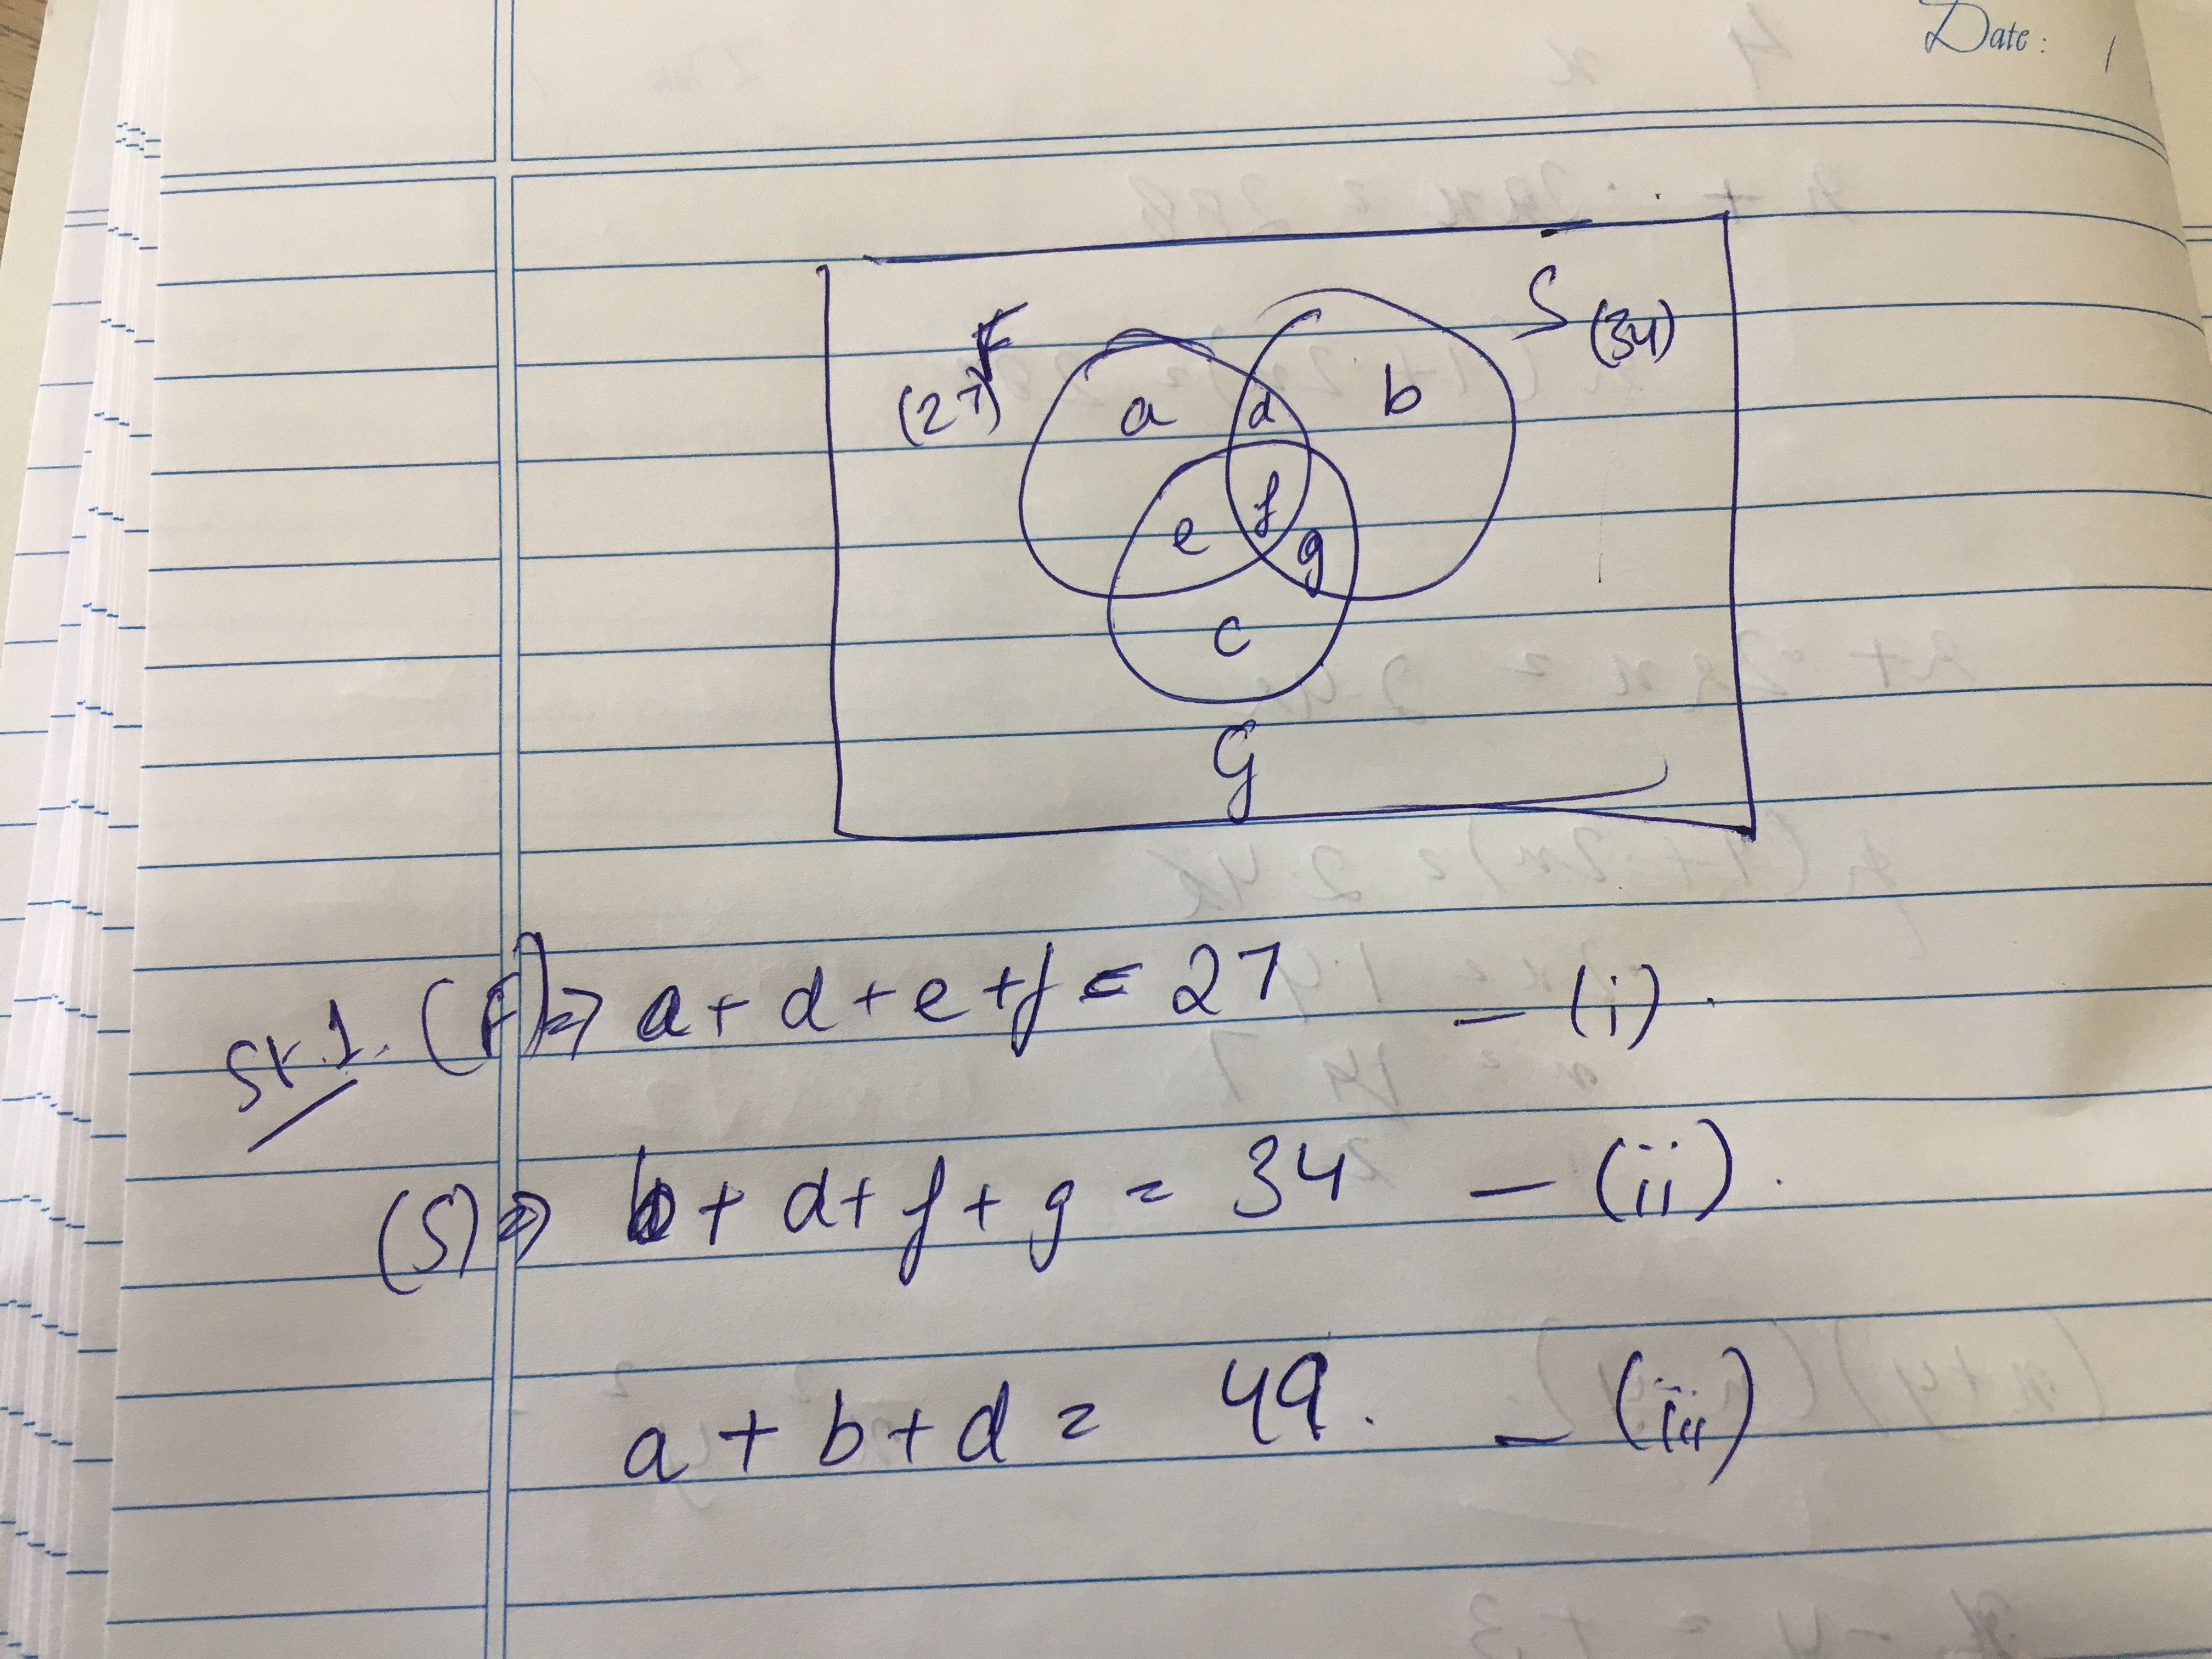 Date:
S (34)
F
(27)
a d b
e f g
c
G
St.1. (F) => a + d + e + f = 27 - (i).
(S) => b + d + f + g = 34 - (ii).
a + b + d = 49. - (iii)